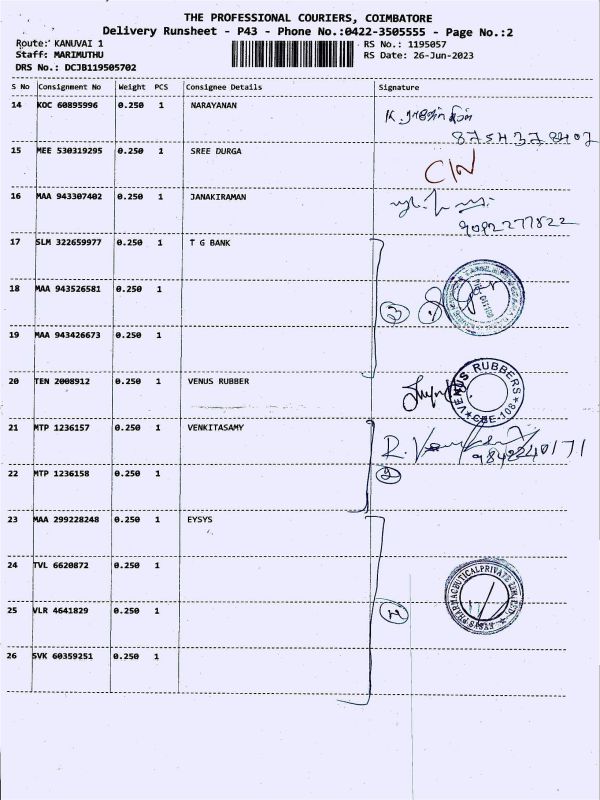 THE PROFESSIONAL COURIERS, COIMBATORE
Delivery Runsheet - P43 - Phone No.:0422-3505555 - Page No.:2
Route: KANUVAI 1 RS No.: 1195057
Staff: MARIMUTHU RS Date: 26-Jun-2023
DRS No.: DCJB119505702
S No Consignment No Weight PCS Consignee Details Signature
14 KOC 60895996 0.250 1 NARAYANAN
15 MEE 530319295 0.250 1 SREE DURGA
16 MAA 943307402 0.250 1 JANAKIRAMAN
9092277822
17 SLM 322659977 0.250 1 T G BANK
18 MAA 943526581 0.250 1
3
19 MAA 943426673 0.250 1
20 TEN 2008912 0.250 1 VENUS RUBBER
VENUS RUBBERS
★ CBE-108 ★
21 MTP 1236157 0.250 1 VENKITASAMY
9842240171
22 MTP 1236158 0.250 1
2
23 MAA 299228248 0.250 1 EYSYS
24 TVL 6620872 0.250 1
EYSYS PHARMACEUTICAL PRIVATE LIMITED
25 VLR 4641829 0.250 1
26 SVK 60359251 0.250 1